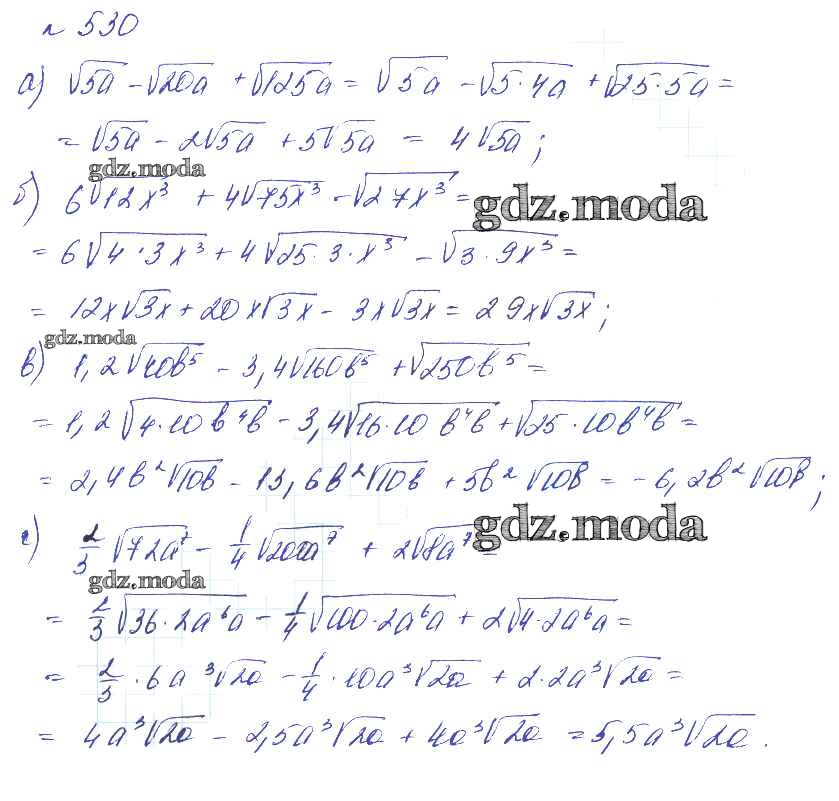 № 530
а) √5a − √20a + √125a = √5a − √5·4a + √25·5a =
= √5a − 2√5a + 5√5a = 4√5a;
gdz.moda
б) 6√12x³ + 4√75x³ − √27x³ =
gdz.moda
= 6√4·3x³ + 4√25·3·x³ − √3·9x³ =
= 12x√3x + 20x√3x − 3x√3x = 29x√3x;
gdz.moda
в) 1,2√40b⁵ − 3,4√160b⁵ + √250b⁵ =
= 1,2√4·10b⁴b − 3,4√16·10b⁴b + √25·10b⁴b =
= 2,4b²√10b − 13,6b²√10b + 5b²√10b = −6,2b²√10b;
gdz.moda
г) 2/3√72a⁷ − 1/4√200a⁷ + 2√8a⁷ =
gdz.moda
= 2/3√36·2a⁶a − 1/4√100·2a⁶a + 2√4·2a⁶a =
= 2/3·6a³√2a − 1/4·10a³√2a + 2·2a³√2a =
= 4a³√2a − 2,5a³√2a + 4a³√2a = 5,5a³√2a.